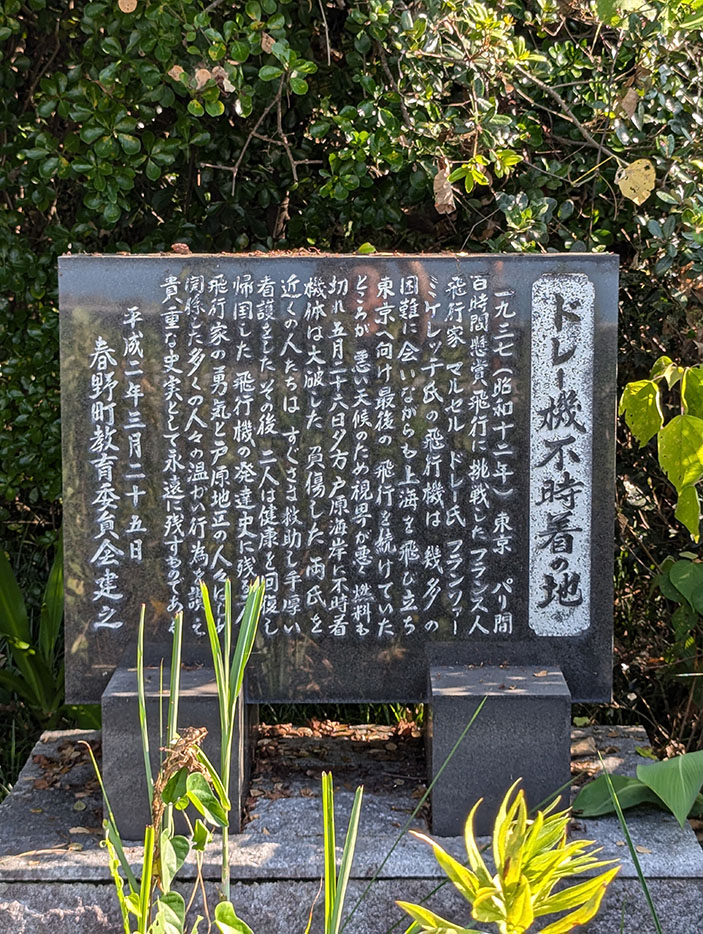 ドレー機不時着の地
一九三七（昭和十二年） 東京 パリ間
百時間懸賞飛行に挑戦した フランス人
飛行家 マルセル ドレー氏 フランソァー
ミケレッチ氏の飛行機は 幾多の
困難に会いながらも上海を飛び立ち
東京へ向け最後の 飛行を続けていた
ところが 悪い天候のため視界が悪く燃料も
切れ五月二十六日夕方 戸原海岸に不時着
機体は大破した 負傷した 両氏を
近くの人たちは すぐさま救助し手厚い
看護をした その後 二人は健康を回復し
帰国した 飛行機の発達史に残る
飛行家の勇気と戸原地区の人々はじめ
関係した多くの人々の温かい行為を讃え
貴重な史実として永遠に残すものである
平成二年三月二十五日
春野町教育委員会建之